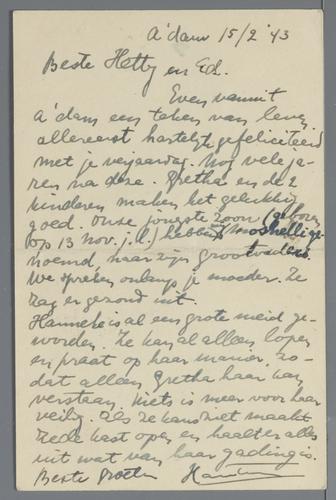 A'dam 15/2 '43
Beste Hetty en Ed.
Even vanuit
A'dam een teken van leven
allereerst hartelijk gefeliciteerd
met je verjaardag. Nog vele ja-
ren na deze. Gretha en de 2
kinderen maken het gelukkig
goed. Onze jongste zoon (geboren
op 13 nov. j.l.) hebben we ge-
noemd, naar zijn grootvaders.
We spreken onlangs je moeder. Ze
zag er gezond uit.
Hanneke is al een grote meid ge-
worden. Ze kan al alleen lopen
en praat op haar manier, zo-
dat alleen Gretha haar kan
verstaan. Niets is meer voor haar
veilig. Als ze kans ziet maakt
ze de kast open en haalt er alles
uit wat van haar gading is.
Beste groeten